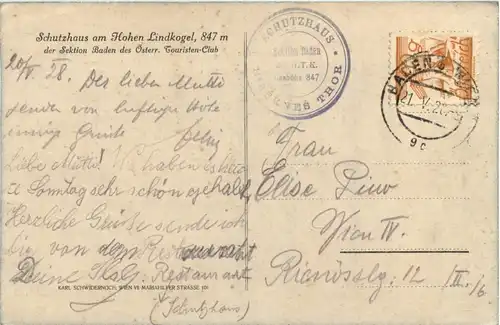 Schutzhaus am Hohen Lindkogel, 847 m
der Sektion Baden des Österr. Touristen-Club
20/V. 28. Der lieben Mutti
senden von luftiger Höhe
innige Grüße
Liebe Mutti! Wir haben es heute
Sonntag sehr schön gehabt,
Herzliche Grüße sende ich
von dem Restaurant
Deine
Restaurant
(Schutzhaus)
KARL SCHWIDERNOCH, WIEN VI MARIAHILFER STRASSE 101
SCHUTZHAUS
Sektion Baden
Ö.T.K.
Seehöhe 847
EISERNES THOR
BADEN B. WIEN
21. V. 28
9c
Frau
Elise
Wien IV.
12 /III. /6